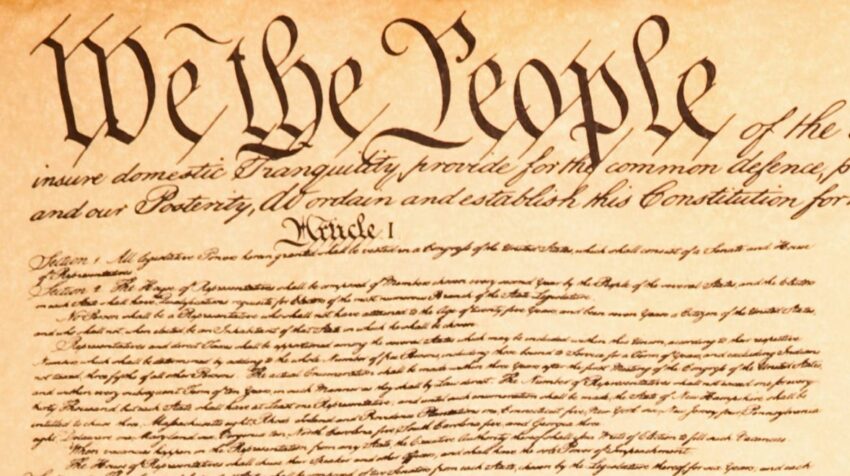 We the People of the
insure domestic Tranquility, provide for the common defence, p
and our Posterity, do ordain and establish this Constitution for
Article I
Section 1 All legislative Powers herein granted shall be vested in a Congress of the United States, which shall consist of a Senate and House
of Representatives.
Section 2 The House of Representatives shall be composed of Members chosen every second Year by the People of the several States, and the Electors
in each State shall have Qualifications requisite for Electors of the most numerous Branch of the State Legislature.
No Person shall be a Representative who shall not have attained to the Age of twenty five Years, and been seven Years a Citizen of the United States,
and who shall not, when elected, be an Inhabitant of that State in which he shall be chosen.
Representatives and direct Taxes shall be apportioned among the several States which may be included within this Union, according to their respective
Numbers, which shall be determined by adding to the whole Number of free Persons, including those bound to Service for a Term of Years, and excluding Indians
not taxed, three fifths of all other Persons. The actual Enumeration shall be made within three Years after the first Meeting of the Congress of the United States,
and within every subsequent Term of ten Years, in such Manner as they shall by Law direct. The Number of Representatives shall not exceed one for every
thirty Thousand, but each State shall have at Least one Representative; and until such enumeration shall be made, the State of New Hampshire shall be
entitled to chuse three, Massachusetts eight, Rhode Island and Providence Plantations one, Connecticut five, New York six, New Jersey four, Pennsylvania
eight, Delaware one, Maryland six, Virginia ten, North Carolina five, South Carolina five, and Georgia three.
When vacancies happen in the Representation from any State, the Executive Authority thereof shall issue Writs of Election to fill such Vacancies.
The House of Representatives shall chuse their Speaker and other Officers; and shall have the sole Power of Impeachment.
of two Senators from each State, chosen by the Legislature thereof, for six Years; and each